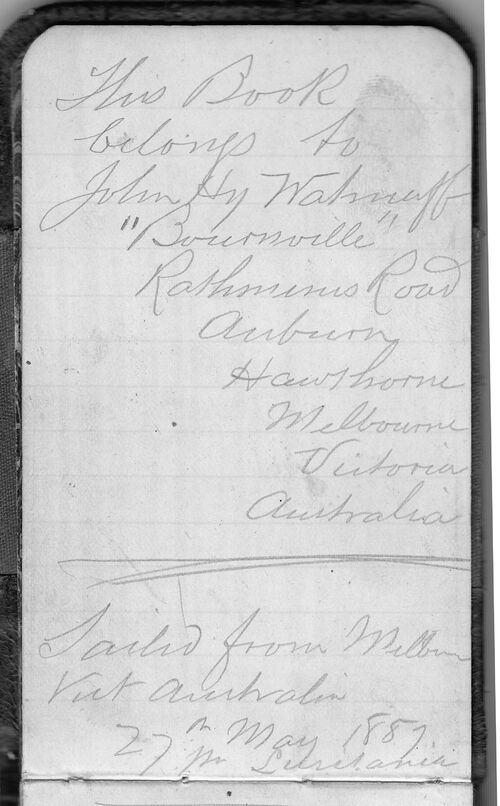 This Book
belongs to
John Hy Watmuff
"Bournville"
Rathmines Road
Auburn
Hawthorne
Melbourne
Victoria
Australia
Sailed from Melbourn
Vict Australia
27th May 1887
pr Lusitania